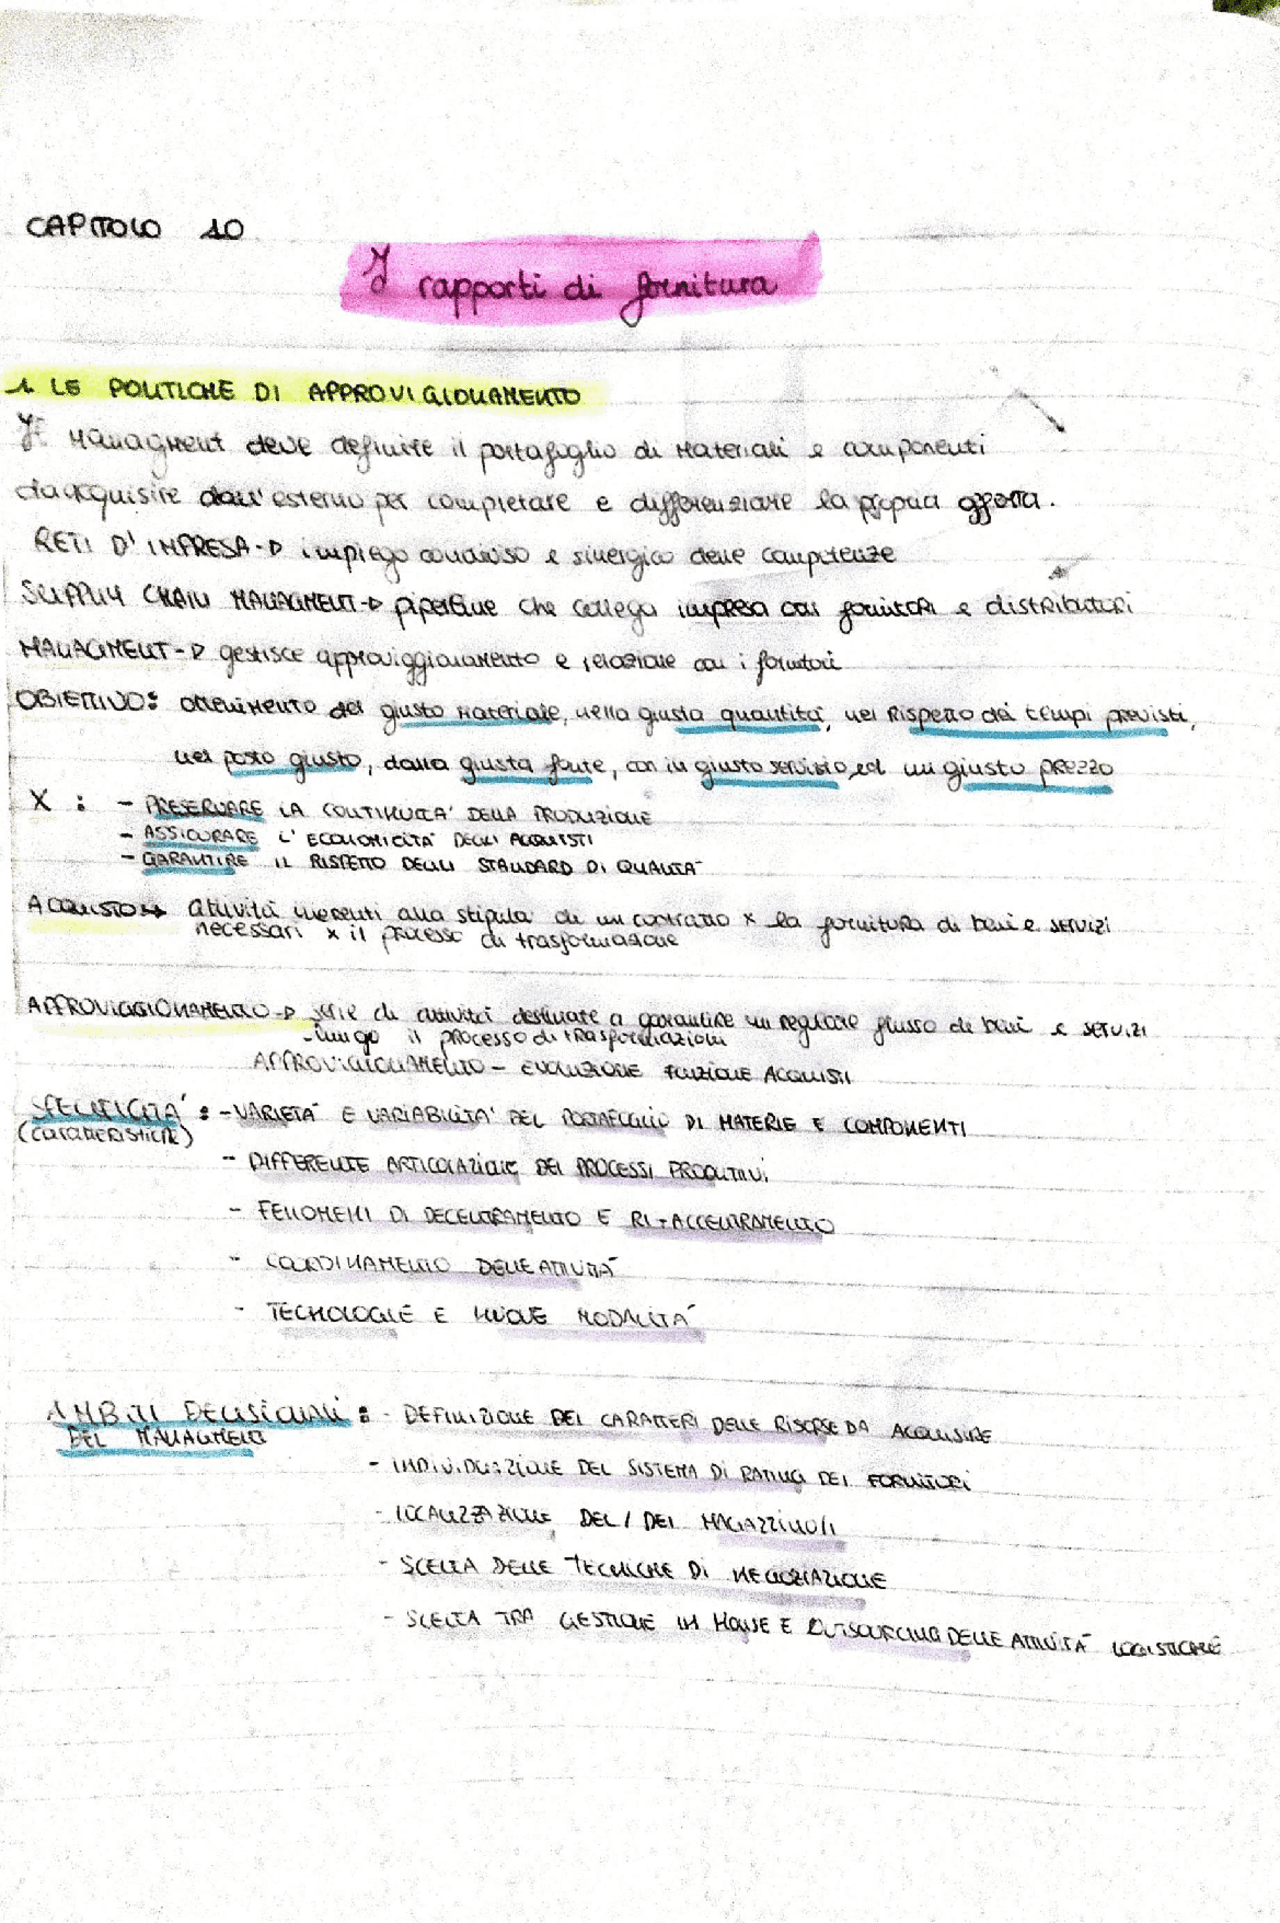 CAPITOLO 10
I rapporti di fornitura
1 LE POLITICHE DI APPROVIGIONAMENTO
Il Managment deve definire il portafoglio di Materiali e componenti
da acquisire dall'esterno per completare e differenziare la propria offerta.
RETI D'IMPRESA → impiego condiviso e sinergico delle competenze
SUPPLY CHAIN MANAGMENT → pipeline che collega impresa con fornitori e distributori
MANAGMENT → gestisce approviggionamento e relazione con i fornitori
OBIETTIVO: ottenimento del giusto materiale, nella giusta quantità, nel rispetto dei tempi previsti,
nel posto giusto, dalla giusta fonte, con un giusto servizio ed un giusto prezzo
X : - PRESERVARE LA CONTINUITA' DELLA PRODUZIONE
- ASSICURARE L'ECONOMICITA' DEGLI ACQUISTI
- GARANTIRE IL RISPETTO DEGLI STANDARD DI QUALITA'
ACQUISTO → attività inerenti alla stipula di un contratto x la fornitura di beni e servizi
necessari x il processo di trasformazione
APPROVIGGIONAMENTO → serie di attività destinate a garantire un regolare flusso di beni e servizi
lungo il processo di trasformazioni
APPROVIGIONAMENTO - EVOLUZIONE FUNZIONE ACQUISTI
SPECIFICITA' : - VARIETA' E VARIABILITA' DEL PORTAFOGLIO DI MATERIE E COMPONENTI
(caratteristiche)
- DIFFERENTE ARTICOLAZIONE DEI PROCESSI PRODUTTIVI
- FENOMENI DI DECENTRAMENTO E RI-ACCENTRAMENTO
- COORDINAMENTO DELLE ATTIVITA'
- TECNOLOGIE E NUOVE MODALITA'
AMBITI DECISIONALI : - DEFINIZIONE DEI CARATTERI DELLE RISORSE DA ACQUISIRE
DEL MANAGMENT
- INDIVIDUAZIONE DEL SISTEMA DI RATING DEI FORNITORI
- LOCALIZZAZIONE DEL / DEI MAGAZZINO/I
- SCELTA DELLE TECNICHE DI NEGOZIAZIONE
- SCELTA TRA GESTIONE IN HOUSE E OUTSOURCING DELLE ATTIVITA' LOGISTICHE